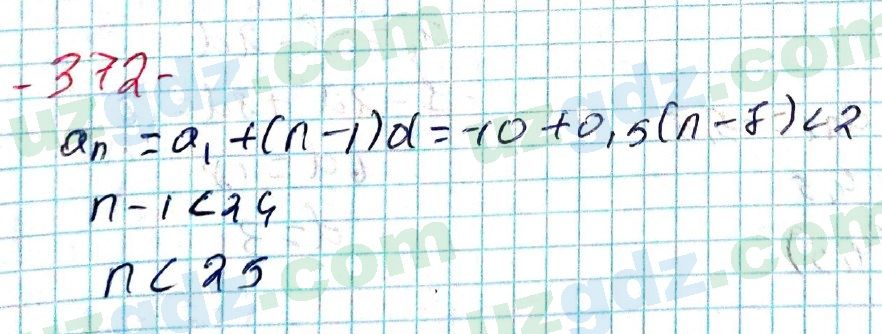 -372-
aₙ = a₁ + (n - 1)d = -10 + 0,5(n - 1) < 2
n - 1 < 24
n < 25
uzgdz.com